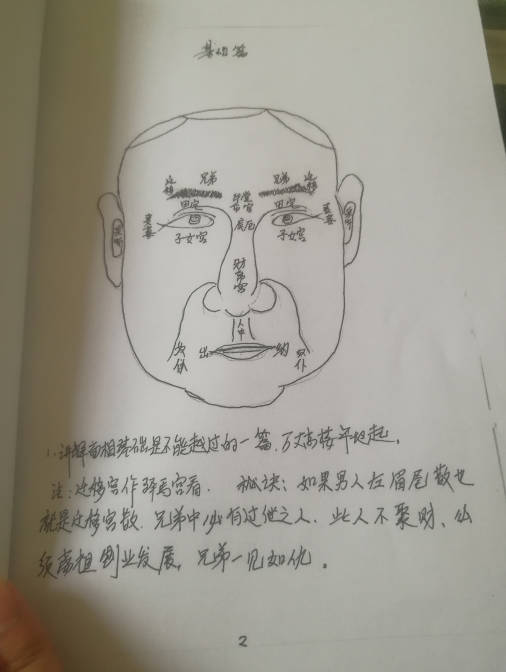 基础篇
迁移 兄弟 兄弟 迁移
田宅 印堂 命宫 田宅
妻妾 疾厄 妻妾
子女宫 子女宫
财帛宫
人中
奴仆 出 纳 奴仆
1、讲解面相基础是不能越过的一篇,万丈高楼平地起。
注:迁移宫作驿马宫看. 秘诀:如果男人左眉尾散也
就是迁移宫散.兄弟中必有过世之人.此人不聚财、必
须离祖创业发展,兄弟一见如仇。
2